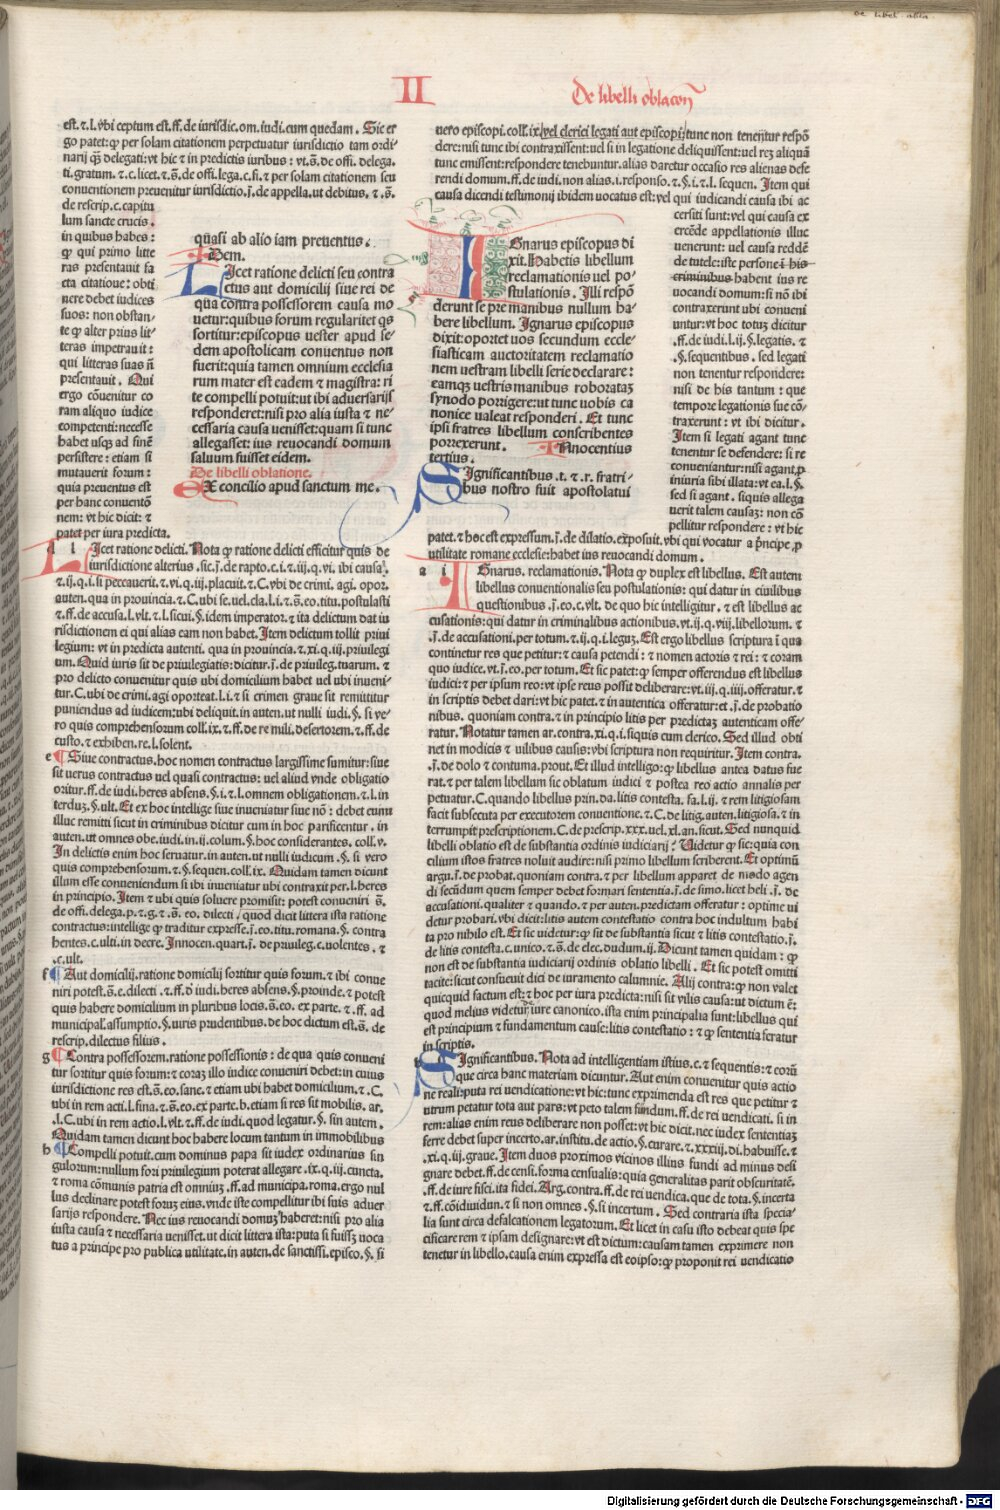 de libel. obla.
II
De libelli oblacoñ
est. ⁊.l. vbi ceptum est. ff. de iurisdic. om. iudi. cum quedam. Sic er
go patet: ꝙ per solam citationem perpetuatur iurisdictio tam ordi
narij ꝙ̃ delegati: vt hic ⁊ in predictis iuribus: vt. s̄. de offi. delega.
ti. gratum. ⁊.c. licet. ⁊. s̄. de offi. lega. c. fi. ⁊ per solam citationem seu
conuentionem preuenitur iurisdictio. j̄. de appella. ut debitus. ⁊. s̄.
de rescrip. c. capitu
lum sancte crucis.
in quibus habes:
ꝙ qui primo litte
ras presentauit fa
cta citatione: obti
nere debet iudices
suos: non obstan
te ꝙ alter prius lit
teras impetrauit:
qui litteras suas ñ
presentauit. Qui
ergo cōuenitur co
ram aliquo iudice
competenti: necesse
habet usqꝫ ad finē
persistere: etiam si
mutauerit forum:
quia preuentus est
per hanc conuentō
nem: vt hic dicit: ⁊
patet per iura predicta.
quasi ab alio iam preuentus.
Idem.
Licet ratione delicti seu contra
ctus aut domicilij siue rei de
qua contra possessorem causa mo
uetur: quibus forum regulariter qs
sortitur: episcopus uester apud se
dem apostolicam conuentus non
fuerit: quia tamen omnium ecclesia
rum mater est eadem ⁊ magistra: ri
te compelli potuit: ut ibi aduersarijs
responderet: nisi pro alia iusta ⁊ ne
cessaria causa uenisset: quam si tunc
allegasset: ius reuocandi domum
saluum fuisset eidem.
De libelli oblatione.
EX concilio apud sanctum me.
d i Licet ratione delicti. Nota ꝙ ratione delicti efficitur quis de
iurisdictione alterius. sic. j̄. de rapto. c. i. ⁊ iij. q. vi. ibi causa.
⁊. ij. q. i. si peccauerit. ⁊ vi. q. iij. placuit. ⁊. C. vbi de crimi. agi. opor.
auten. qua in prouincia. ⁊. C. ubi se. uel. cla. l. i. ⁊. s̄. eo. titu. postulasti
⁊. ff. de accusa. l. vlt. ⁊. l. sicui. §. idem imperator. ⁊ ita delictum dat iu
risdictionem ei qui alias eam non habet. Item delictum tollit priui
legium: vt in predicta autenti. qua in prouincia. ⁊. xi. q. iij. priuilegi
um. Quid iuris sit de priuilegiatis: dicitur. j̄. de priuileg. tuarum. ⁊
pro delicto conuenitur quis ubi domicilium habet uel ubi inueni
tur. C. ubi de crimi. agi oporteat. l. i. ⁊ si crimen graue sit remittitur
puniendus ad iudicem: ubi deliquit. in auten. ut nulli iudi. §. si ve
ro quis comprehensorum coll. ix. ⁊. ff. de re mili. desertorem. ⁊. ff. de
custo. ⁊ exhiben. re. l. solent.
e Siue contractus. hoc nomen contractus largissime sumitur: siue
sit uerus contractus uel quasi contractus: uel aliud vnde obligatio
oritur. ff. de iudi. heres absens. §. i. ⁊ l. omnem obligationem. ⁊ l. in
terduꝫ. §. ult. Et ex hoc intellige siue inueniatur siue nō: debet enim
illuc remitti sicut in criminibus dicitur cum in hoc parificentur. in
auten. ut omnes obe. iudi. in. ij. colum. §. hoc considerantes. coll. v.
In delictis enim hoc seruatur. in auten. ut nulli iudicum. §. si vero
quis comprehensorum. ⁊. §. sequen. coll. ix. Quidam tamen dicunt
illum esse conueniendum si ibi inueniatur ubi contraxit per. l. heres
in principio. Item ⁊ ubi quis soluere promisit: potest conueniri s̄.
de offi. delega. p. ⁊. g. ⁊. s̄. eo. dilecti, quod dicit littera ista ratione
contractus: intellige ꝙ traditur expresse. j̄. eo. titu. romana. §. contra
hentes. c. ulti. in decre. Innocen. quart. j̄. de priuileg. c. uolentes. ⁊
.c. ult.
f Aut domicilij. ratione domicilij sortitur quis forum. ⁊ ibi conue
niri potest. s̄. e. dilecti. ⁊ ff. d̄ iudi. heres absens. §. proinde. ⁊ potest
quis habere domicilium in pluribus locis. s̄. eo. ex parte. ⁊. ff. ad
municipal. assumptio. §. uiris prudentibus. de hoc dictum est. s̄. de
rescrip. dilectus filius.
g Contra possessorem. ratione possessionis: de qua quis conueni
tur sortitur quis forum: ⁊ coraꝫ illo iudice conueniri debet: in cuius
iurisdictione res est. s̄. eo. sane. ⁊ etiam ubi habet domicilium. ⁊. C.
ubi in rem acti. l. fina. ⁊ s̄. eo. ex parte. b. etiam si res sit mobilis. ar.
.l. C. ubi in rem actio. l. vlt. ⁊. ff. de iudi. quod legatur. §. sin autem.
Quidam tamen dicunt hoc habere locum tantum in immobilibus
h Compelli potuit. cum dominus papa sit iudex ordinarius sin
gulorum: nullum fori priuilegium poterat allegare. ix. q. iij. cuncta.
⁊ roma cōmunis patria est omniuꝫ. ff. ad municipa. roma. ergo nul
lus declinare potest foruꝫ eius. vnde iste compellitur ibi suis aduer
sarijs respondere. Nec ius reuocandi domuꝫ haberet: nisi pro alia
iusta causa ⁊ necessaria uenisset. ut dicit littera ista: puta si fuissꝫ uoca
tus a principe pro publica utilitate. in auten. de sanctissi. episco. §. si
uero episcopi. coll. ix. vel clerici legati aut episcopi: tunc non tenentur respō
dere: nisi tunc ibi contraxissent: uel si in legatione deliquissent: uel reꝫ aliquā
tunc emissent: respondere tenebuntur. alias daretur occasio res alienas defe
rendi domum. ff. de iudi. non alias. i. responso. ⁊ §. i. ⁊. l. sequen. Item qui
causa dicendi testimonij ibidem uocatus est: vel qui iudicandi causa ibi ac
cersiti sunt: vel qui causa ex
ercēde appellationis illuc
uenerunt: uel causa reddē
de tutele: iste persone ī his
criminibus habent ius re
uocandi domum: si nō ibi
contraxerint ubi conueni
untur: vt hoc totuꝫ dicitur
.ff. de iudi. l. ij. §. legatis. ⁊
.§. sequentibus. sed legati
non tenentur respondere:
nisi de his tantum: que
tempore legationis sue cō
traxerunt: vt ibi dicitur.
Item si legati agant tunc
tenentur se defendere: si re
conueniantur: nisi agant. ꝓ
iniuria sibi illata: vt ea. l. §.
sed si agant. siquis allega
uerit talem causaꝫ: non cō
pellitur respondere: vt hic
patet. ⁊ hoc est expressum. j̄. de dilatio. exposuit. vbi qui vocatur a p̄ncipe. ꝓ
utilitate romane ecclesie: habet ius reuocandi domum.
IGnarus episcopus di
xit. Habetis libellum
reclamationis uel po
stulationis. Illi respō
derunt se pre manibus nullum ha
bere libellum. Ignarus episcopus
dixit: oportet uos secundum eccle
siasticam auctoritatem reclamatio
nem uestram libelli serie declarare:
eamqꝫ uestris manibus roborataꝫ
synodo porrigere: ut tunc uobis ca
nonice ualeat responderi. Et tunc
ipsi fratres libellum conscribentes
porrexerunt. Innocentius
tertius.
Significantibus. t. ⁊. r. fratri
bus nostro fuit apostolatui
a i IGnarus. reclamationis. Nota ꝙ duplex est libellus. Est autem
libellus conuentionalis seu postulationis: qui datur in ciuilibus
questionibus. j̄. eo. c. vlt. de quo hic intelligitur. ⁊ est libellus ac
cusationis: qui datur in criminalibus actionibus. vt. ij. q. viij. libellorum. ⁊
.j̄. de accusationi. per totum. ⁊ ij. q. i. leguꝫ. Est ergo libellus scriptura ī qua
continetur res que petitur: ⁊ causa petendi: ⁊ nomen actoris ⁊ rei: ⁊ coram
quo iudice. vt. j̄. eo. per totum. Et sic patet: ꝙ semper offerendus est libellus
iudici: ⁊ per ipsum reo: vt ipse reus possit deliberare: vt. iij. q. iij. offeratur. ⁊
in scriptis debet dari: vt hic patet. ⁊ in autentica offeratur: et. j̄. de probatio
nibus. quoniam contra. ⁊ in principio litis per predictaꝫ autenticam offe
ratur. Notatur tamen ar. contra. xi. q. i. siquis cum clerico. Sed illud obti
net in modicis ⁊ uilibus causis: vbi scriptura non requiritur. Item contra.
.j̄. de dolo ⁊ contuma. prout. Et illud intelligo: ꝙ libellus antea datus fue
rat. ⁊ per talem libellum sic oblatum iudici ⁊ postea reo actio annalis per
petuatur. C. quando libellus prin. da. litis contesta. fa. l. ij. ⁊ rem litigiosam
facit subsecuta per executorem conuentione. ⁊ C. de litig. auten. litigiosa. ⁊ in
terrumpit prescriptionem. C. de prescrip. xxx. uel. xl. an. sicut. Sed nunquid
libelli oblatio est de substantia ordinis iudiciarij? Uidetur ꝙ sic: quia con
cilium istos fratres noluit audire: nisi primo libellum scriberent. Et optimū
argu. j̄. de probat. quoniam contra. ⁊ per libellum apparet de modo agen
di secūdum quem semper debet formari sententia. j̄. de simo. licet heli. j̄. de
accusationi. qualiter ⁊ quando. ⁊ per auten. predictam offeratur: optime ui
detur probari. vbi dicit: litis autem contestatio contra hoc indultum habi
ta pro nihilo est. Et sic uidetur: ꝙ sit de substantia sicut ⁊ litis contestatio. j̄.
de litis contesta. c. unico. ⁊. s̄. de elec. dudum. ij. Dicunt tamen quidam: ꝙ
non est de substantia iudiciarij ordinis oblatio libelli. Et sic potest omitti
tacite: sicut consueuit dici de iuramento calumnie. Alij contra: ꝙ non valet
quicquid factum est: ⁊ hoc per iura predicta: nisi sit vilis causa: ut dictum ē:
quod melius videtur de iure canonico. ista enim principalia sunt: libellus qui
est principium ⁊ fundamentum cause: litis contestatio: ⁊ ꝙ sententia feratur
in scriptis.
b SIgnificantibus. Nota ad intelligentiam istius. c. ⁊ sequentis: ⁊ eorū
que circa hanc materiam dicuntur. Aut enim conuenitur quis actio
ne reali: puta rei uendicatione: vt hic: tunc exprimenda est res que petitur ⁊
utrum petatur tota aut pars: vt peto talem fūndum. ff. de rei uendicati. si in
rem: alias enim reus deliberare non posset: vt hic dicit. nec iudex sententiaꝫ
ferre debet super incerto. ar. institu. de actio. §. curare. ⁊. xxxiij. di. habuisse. ⁊
.xi. q. iij. graue. Item duos proximos vicinos illius fundi ad minus desi
gnare debet. ff. de censi. forma censuali: quia generalitas parit obscuritatē.
.ff. de iure fisci. ita fidei. Arg. contra. ff. de rei uendica. que de tota. §. incerta
⁊. ff. cōi diuidun. ⁊ si non omnes. §. si incertum. Sed contraria ista specia
lia sunt circa defalcationem legatorum. Et licet in casu isto debeat quis spe
cificare rem ⁊ ipsam designare: vt est dictum: causam tamen exprimere non
tenetur in libello. causa enim expressa est eo ipso: ꝙ proponit rei uendicatio
Digitalisierung gefördert durch die Deutsche Forschungsgemeinschaft - DFG